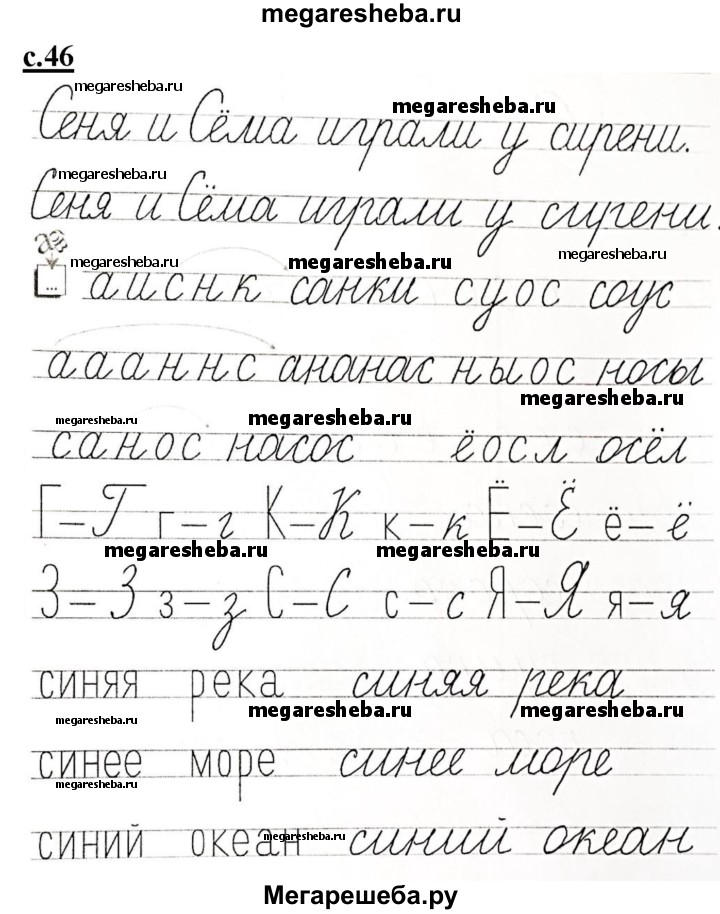 megaresheba.ru
с.46
megaresheba.ru
megaresheba.ru
Сеня и Сёма играли у сирени.
megaresheba.ru
Сеня и Сёма играли у сирени.
аз
megaresheba.ru megaresheba.ru megaresheba.ru
... а и с н к санки с у о с соус
а а а н н с ананас н ы о с носы
megaresheba.ru
megaresheba.ru megaresheba.ru
с а н о с насос ё о с л осёл
Г–Г г–г К–К к–к Ё–Ё ё–ё
megaresheba.ru megaresheba.ru
З–З з–з С–С с–с Я–Я я–я
синяя река синяя река
megaresheba.ru megaresheba.ru megaresheba.ru
синее море синее море
megaresheba.ru
megaresheba.ru
синий океан синий океан
Мегарешеба.ру